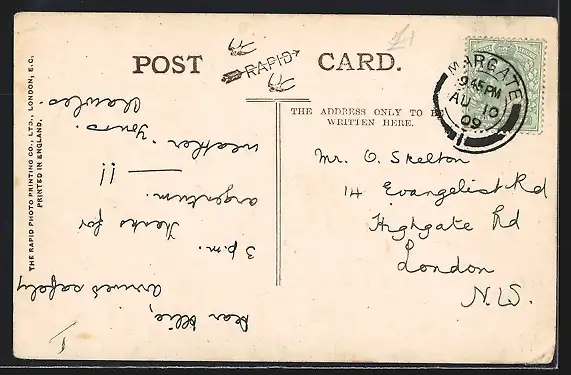 POST CARD.
RAPID
£1
THE ADDRESS ONLY TO BE
WRITTEN HERE.
MARGATE
9.45 PM
AU 10
09
1
Mr. O. Skelton
14 Evangelist Rd
Highgate Rd
London
N.W.
Dear Ollie,
arrived safely
3 p.m. Thanks for
argentum.
!!
weather. Yours.
Charles.
THE RAPID PHOTO PRINTING CO., LTD., LONDON, E.C.
PRINTED IN ENGLAND.